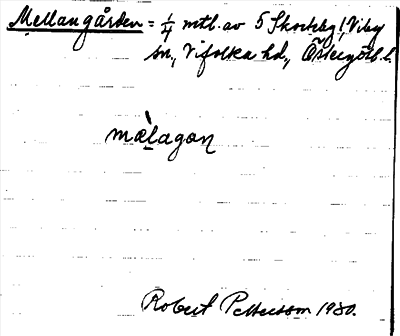 Mellangården = 1/4 mtl. av 5 Skorteby, Viby
sn., Vifolka hd., Östergötl. l.
mælagon
Robert Pettersson 1930.